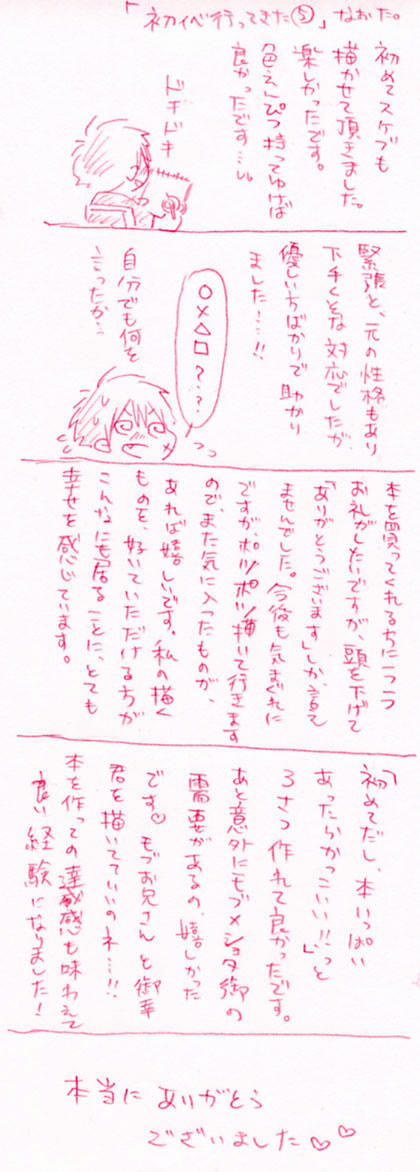 「初イベ行ってきた⑤」なおた。
初めてスケブも
描かせて頂きました。
楽しかったです。
色えんぴつ持ってゆけば
良かったです…。
ドキドキ
緊張と、元の性格もあり
下手くそな対応でしたが、
優しい方ばかりで助かり
ました…!!
○×△□?…?
自分でも何を
言ったか…
本を買ってくれる方に一つ一つ
お礼がしたいですが、頭を下げて
「ありがとうございます」しか、言て
ませんでした。今後も気まぐれに
ですが、ポツポツ描いて行きます
ので、また気に入ったものが、
あれば嬉しいです。私の描く
ものを、好いていただける方が
こんなにも居ることに、とても
幸せを感じています。
「初めてだし、本いっぱい
あったらかっこいい!!」っと
3さつ作れて良かったです。
あと意外にモブ×ショタ御の
需要があるの、嬉しかった
です♡モブお兄さんと御幸
君を描いてていいのネ…!!
本を作っての達成感も味わえて
良い経験になりました!
本当にありがとう
ございました♡♡